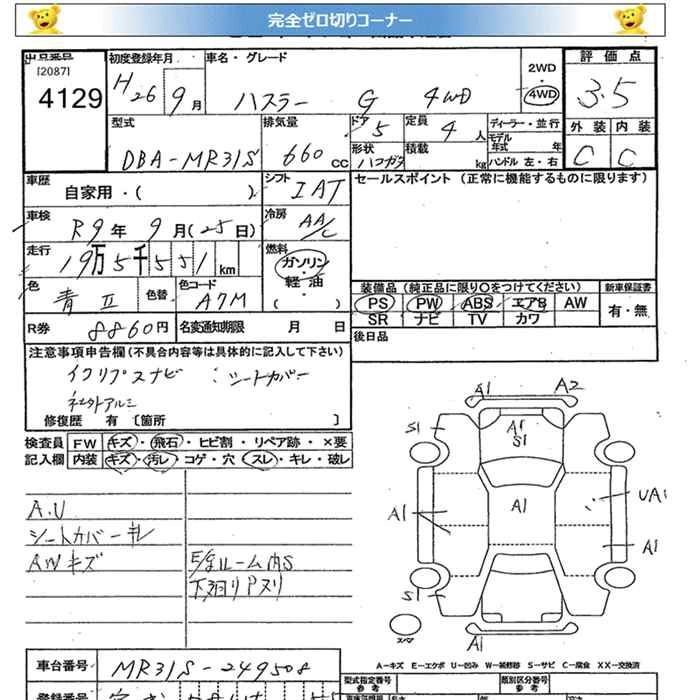 完全ゼロ切りコーナー
出品番号 初度登録年月 車名・グレード 評価点
[2087]
4129
H26 9月 ハスラー G 4WD
2WD
・
4WD
3.5
型式 排気量 ドア 定員 ディーラー・並行 外装 内装
DBA-MR31S 660cc 5 4人
モデル年式 年
形状 積載 kg ハンドル 左・右
C C
車歴 シフト セールスポイント (正常に機能するものに限ります)
自家用・( ) IAT
車検 冷房
R9年 9月(25日) AA/C
走行 燃料
19万5千551km ガソリン
・
軽油
( )
色 色替 色コード
青II A7M
装備品 (純正品に限り○をつけてください) 新車保証書
PS PW ABS エアB AW 有・無
SR ナビ TV カワ
R券 8860円 名変通知期限 月 日 後日品
注意事項申告欄 (不具合内容等は具体的に記入して下さい)
イクリプスナビ シートカバー
社外アルミ
修復歴 有 〔箇所 〕
検査員 FW キズ・飛石・ヒビ割・リペア跡・×要
記入欄 内装 キズ・汚レ・コゲ・穴・スレ・キレ・破レ
A.U
シートカバーキレ
AWキズ
E/gルーム内S
下廻りPヌリ
A1 A2
S1
A1
S1
A1
A1
UA1
A1
S1
スペア
A1
A-キズ E-エクボ U-凹み W-補修跡 S-サビ C-腐食 XX-交換済
車台番号 MR31S-249508
型式指定番号
参考
類別区分番号
参考